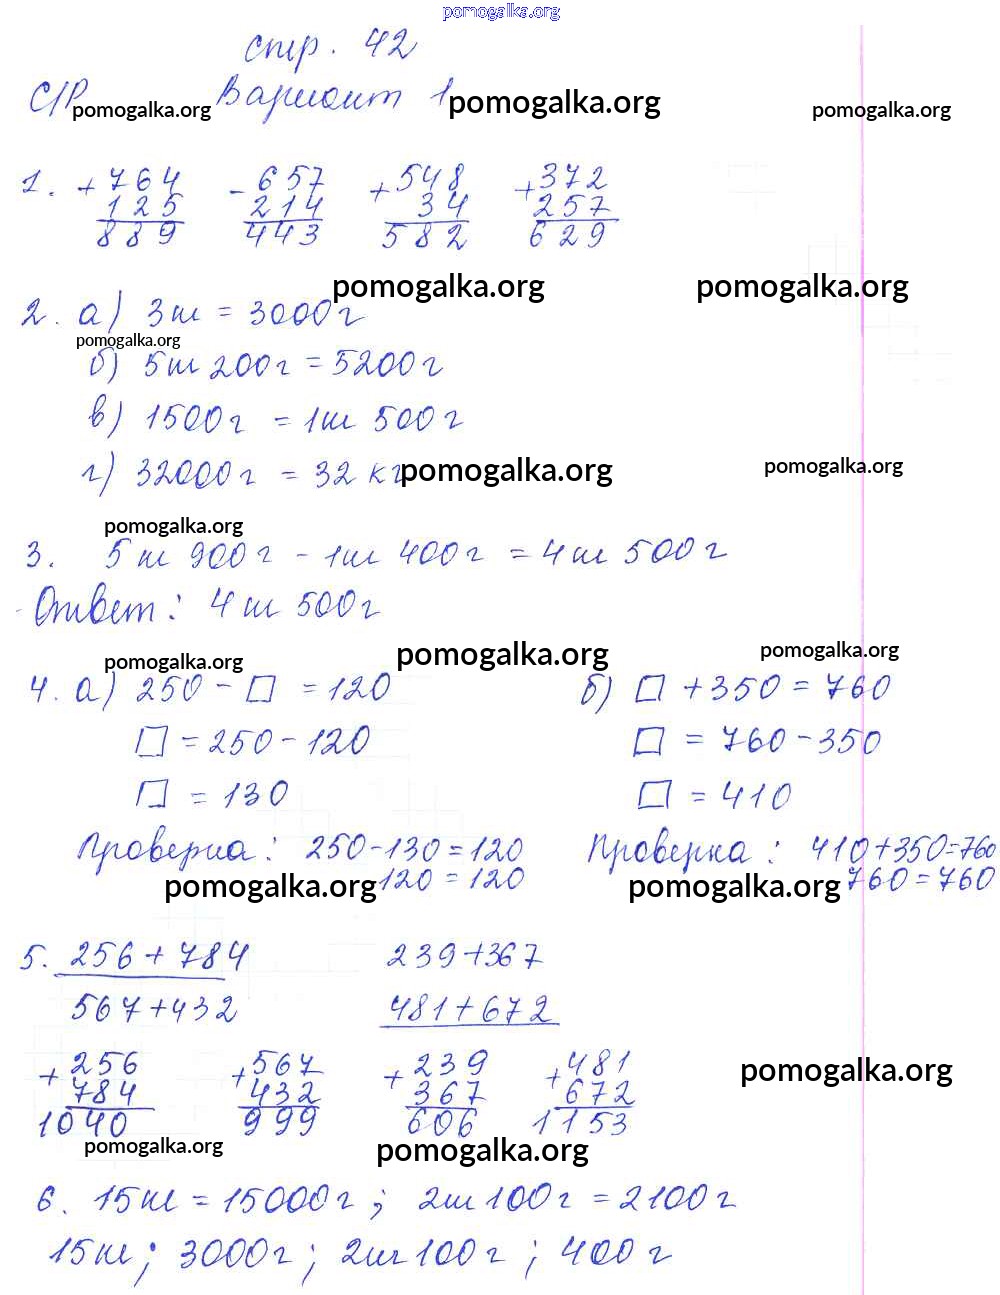 pomogalka.org
стр. 42
С/Р Вариант 1
pomogalka.org pomogalka.org pomogalka.org
1. +764 -657 +548 +372
125 214 34 257
889 443 582 629
pomogalka.org pomogalka.org
2. а) 3кг = 3000г
pomogalka.org
б) 5кг 200г = 5200г
в) 1500г = 1кг 500г
г) 32000г = 32 кг
pomogalka.org pomogalka.org
pomogalka.org
3. 5кг 900г - 1кг 400г = 4кг 500г
Ответ: 4кг 500г
pomogalka.org pomogalka.org pomogalka.org
4. а) 250 - □ = 120 б) □ + 350 = 760
□ = 250 - 120 □ = 760 - 350
□ = 130 □ = 410
Проверка: 250-130=120 Проверка: 410+350=760
120 = 120 760 = 760
pomogalka.org pomogalka.org
5. 256 + 784 239+367
567+432 481+672
+256 +567 +239 +481
784 432 367 672
1040 999 606 1153
pomogalka.org
pomogalka.org pomogalka.org
6. 15кг = 15000г; 2кг 100г = 2100г
15кг; 3000г; 2кг 100г; 400г